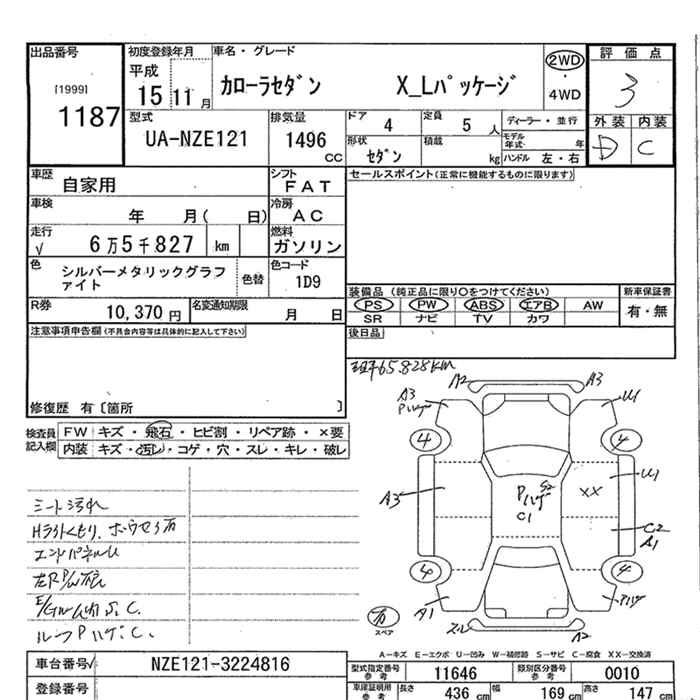 出品番号 初度登録年月 車名・グレード 評価点
[1999] 平成 2WD・4WD 3
1187 15 11月 カローラセダン X_Lパッケージ
型式 排気量 ドア 4 定員 5人 ディーラー・並行 外装 内装
UA-NZE121 1496cc 形状 セダン 積載 kg モデル年式 年 D C
ハンドル 左・右
車歴 自家用 シフト FAT セールスポイント(正常に機能するものに限ります)
車検 年 月( 日) 冷房 AC
走行 √ 6万5千827 km 燃料 ガソリン
色 シルバーメタリックグラファイト 色替 色コード 1D9
装備品(純正品に限り○をつけてください) 新車保証書
R券 10,370円 名変通知期限 月 日 PS PW ABS エアB AW 有・無
SR ナビ TV カワ
注意事項申告欄(不具合内容等は具体的に記入して下さい) 後日品
修復歴 有〔箇所 〕
65.828km
検査員記入欄 FW キズ・飛石・ヒビ割・リペア跡・×要
内装 キズ・汚レ・コゲ・穴・スレ・キレ・破レ
A2 A3
A3 Pハゲ U1
4 4
A3 Pハゲ S2 C1 XX U1
C2 A1
4 4
A1 Pハゲ
スペア A2
シート汚れ
ルーフPハゲ.C.
A−キズ E−エクボ U−凹み W−補修跡 S−サビ C−腐食 XX−交換済
車台番号 √ NZE121-3224816 型式指定番号 参考 11646 類別区分番号 参考 0010
登録番号 車庫証明用 参考 長さ 436 cm 幅 169 cm 高さ 147 cm